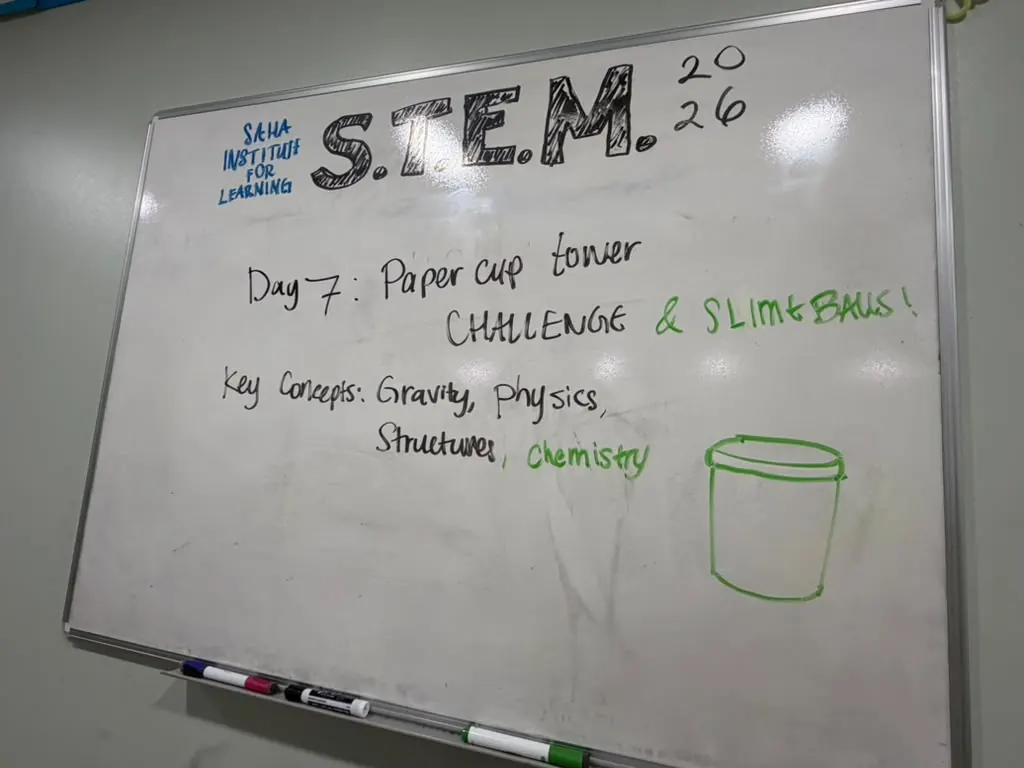 SAHA
INSTITUTE
FOR
LEARNING
S.T.E.M.
20
26
Day 7: Paper cup tower
CHALLENGE & SLIME BALLS!
Key Concepts: Gravity, physics,
Structures, Chemistry